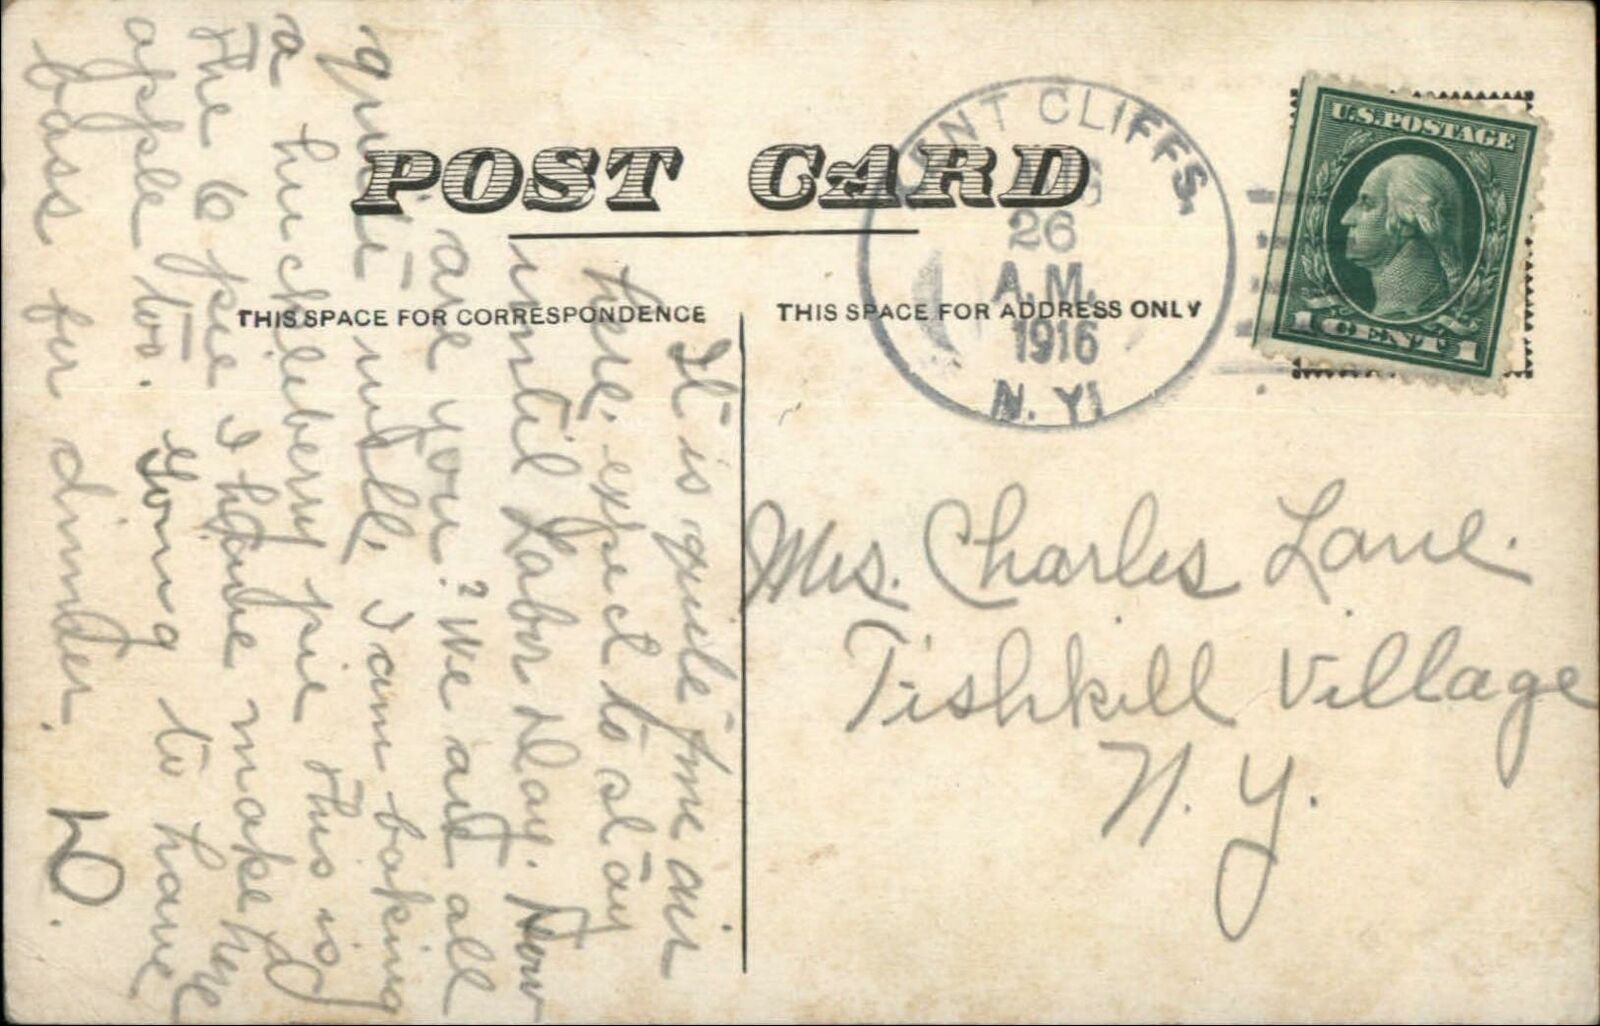 POST CARD
THIS SPACE FOR CORRESPONDENCE
THIS SPACE FOR ADDRESS ONLY
NT CLIFFS.
26
A.M.
1916
N. Y.
U.S. POSTAGE
1 CENT 1
It is quite fine air
here, expect to stay
until Labor Day. How
are you? We are all
quite well. I am baking
a huckleberry pie this is
the 10 pie I have make here
apple too. Going to have
bass for dinner. D.
Mrs. Charles Lane.
Fishkill Village
N. Y.